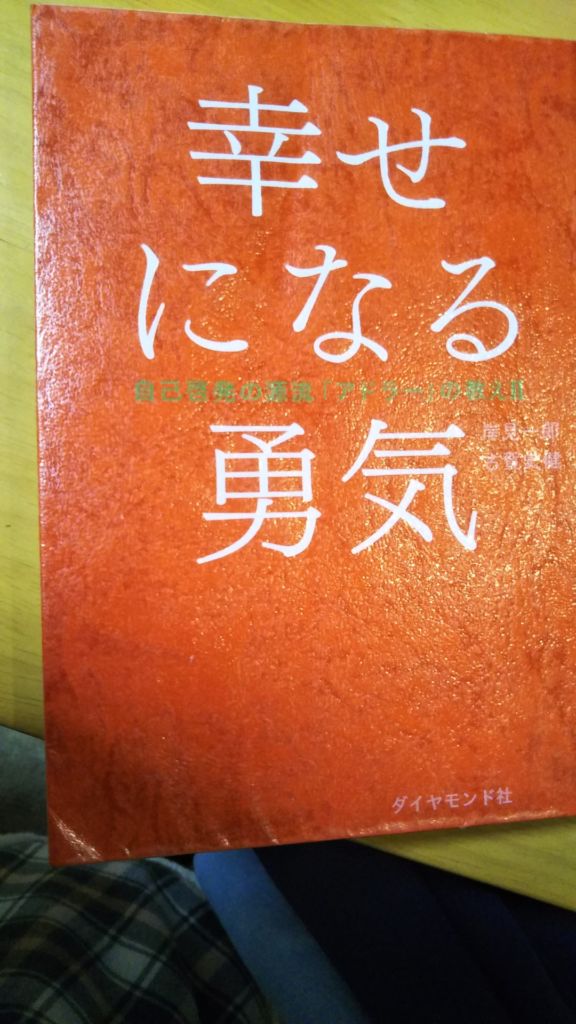 幸せ
になる
自己啓発の源流「アドラー」の教えⅡ
勇気
岸見一郎
古賀史健
ダイヤモンド社